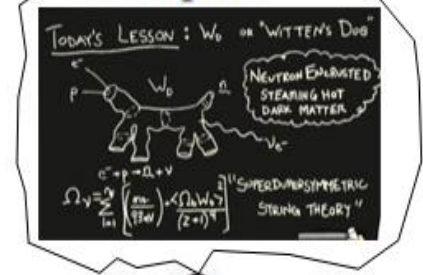 TODAY'S LESSON : W_D OR "WITTEN'S DOG"
e⁻
P
W_D
n
NEUTRON ENCRUSTED
STEAMING HOT
DARK MATTER
ν_e⁻
e⁻ + p → n + ν
"SUPERDUPERSYMMETRIC
STRING THEORY"